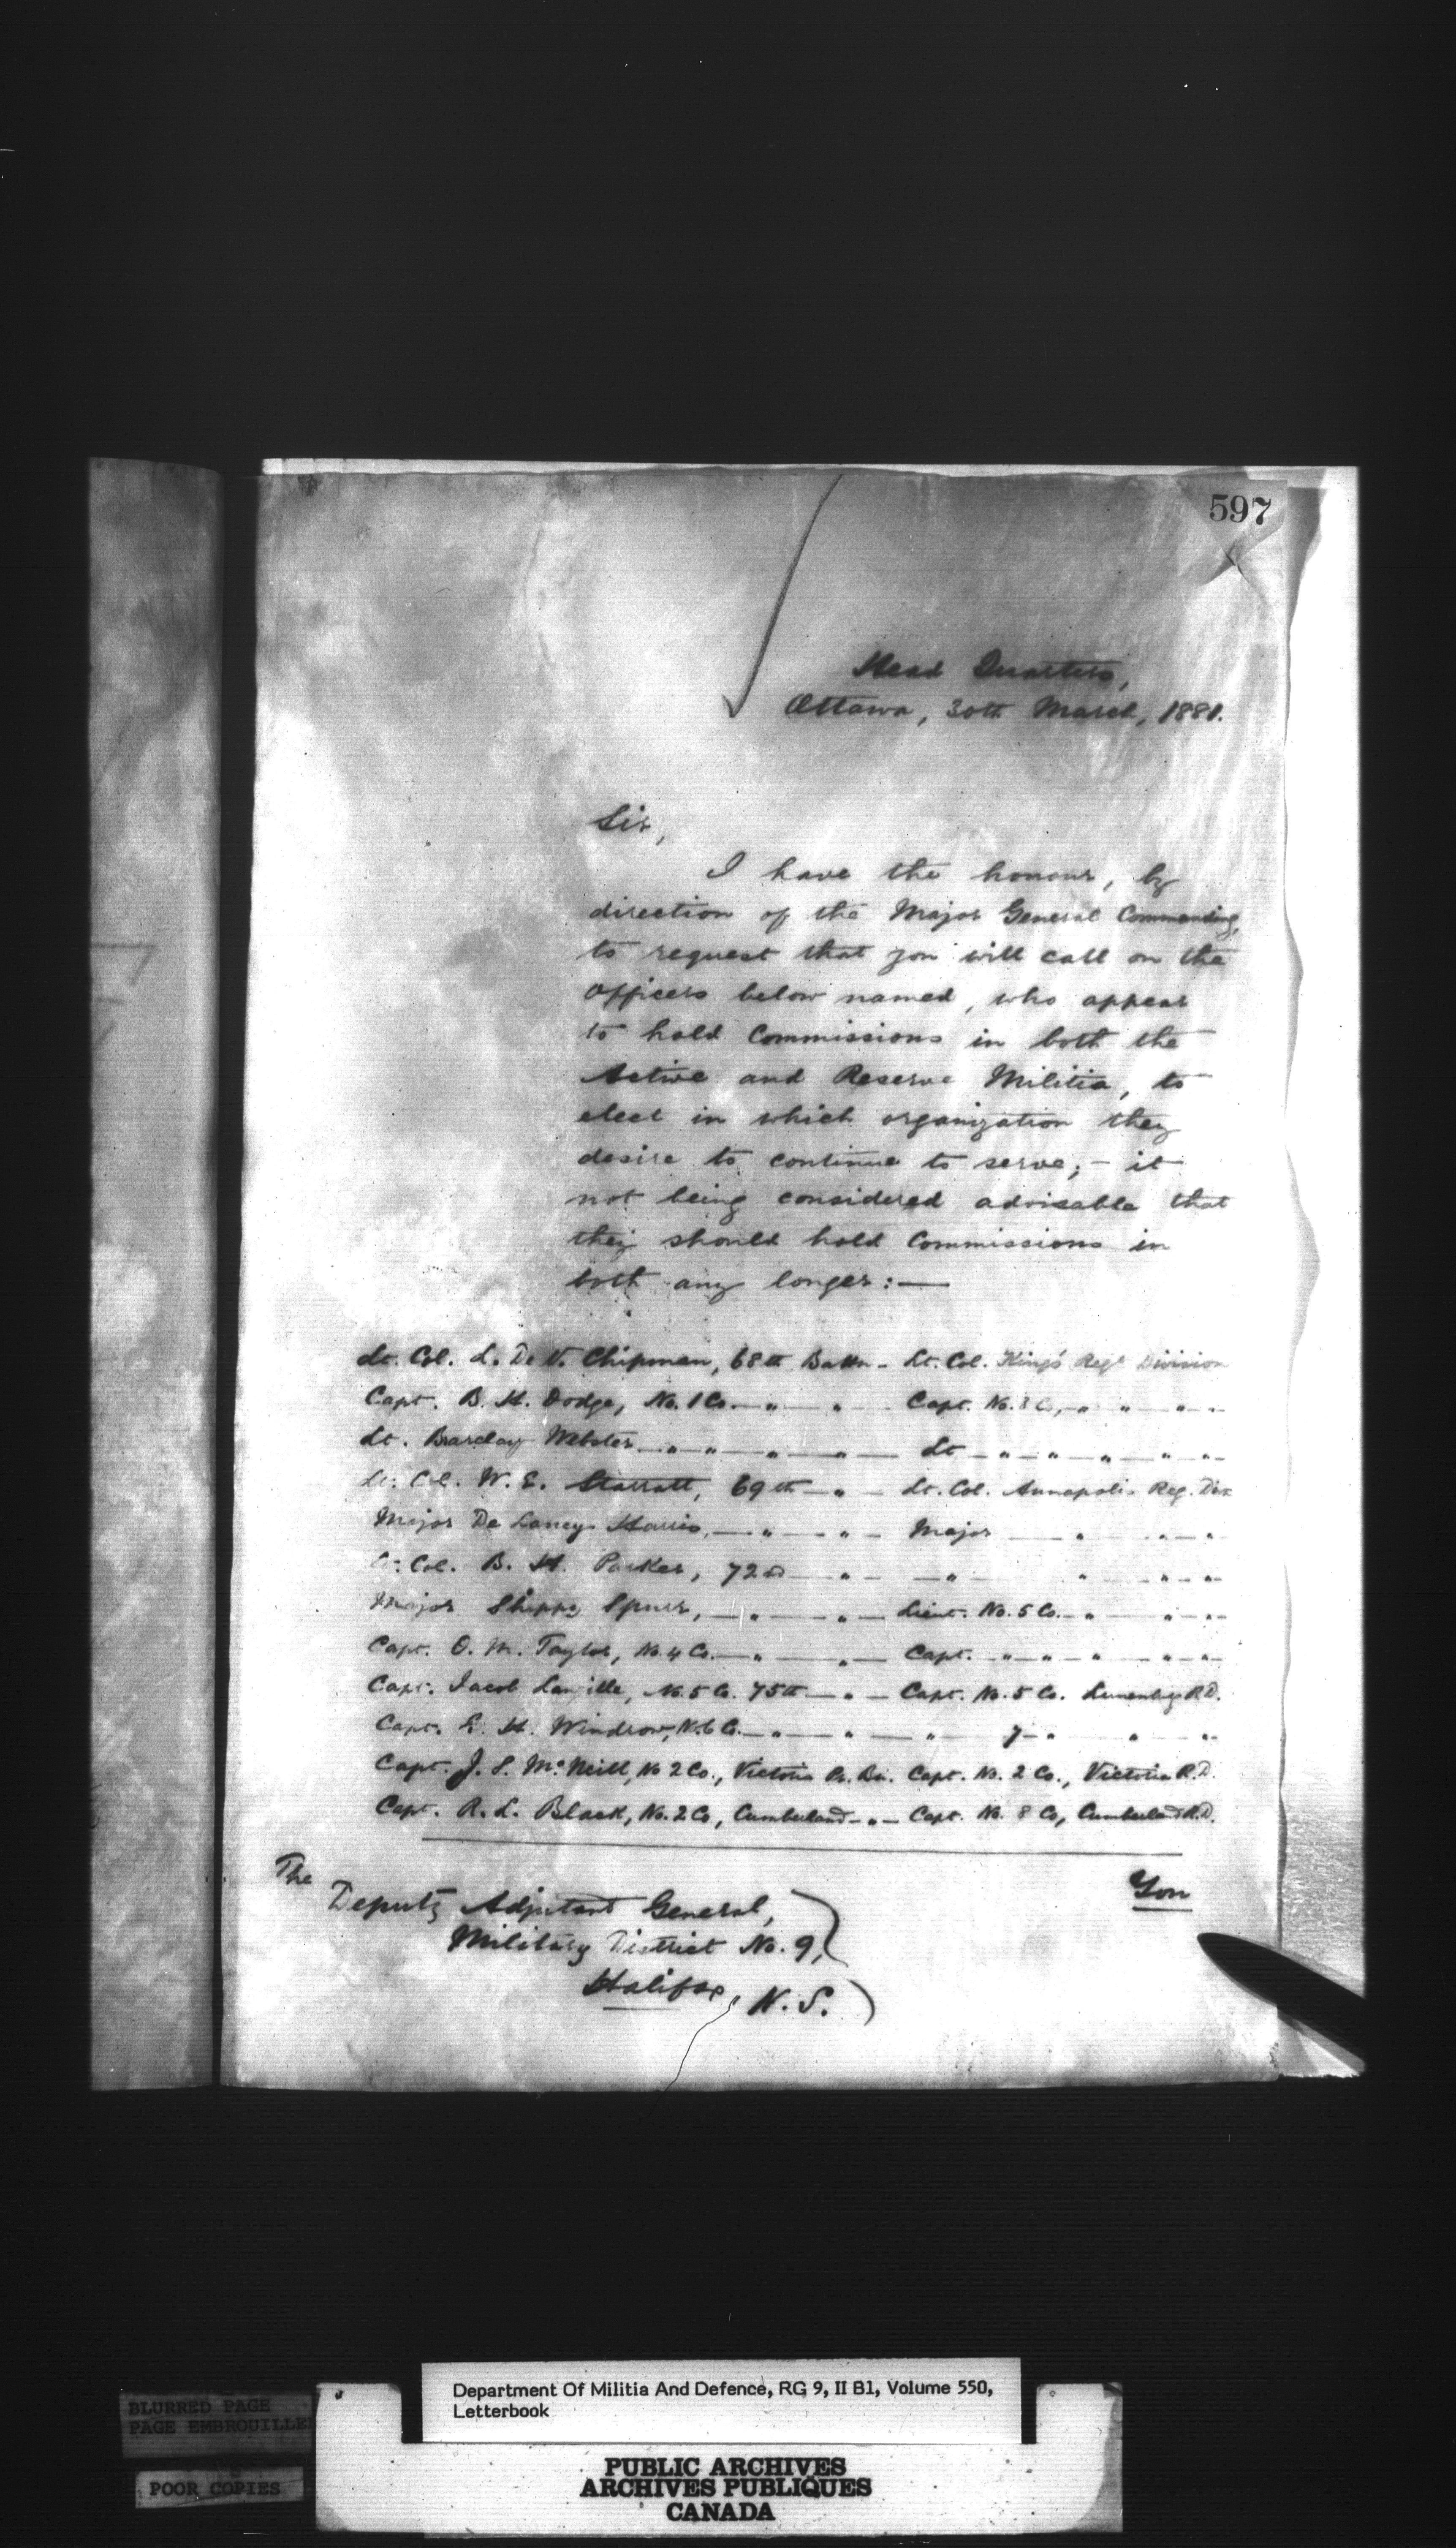 597
Head Quarters,
Ottawa, 30th March, 1881.
Sir,
I have the honour, by
direction of the Major General Commanding,
to request that you will call on the
Officers below named, who appear
to hold Commissions in both the
Active and Reserve Militia, to
elect in which organization they
desire to continue to serve; – it
not being considered advisable that
they should hold Commissions in
both any longer: —
Lt. Col. L. De V. Chipman, 68th Battn – Lt. Col. King's Regl Division
Capt. B. H. Dodge, No. 1 Co. — " — " — Capt. No. 8 Co, – " " " – "
Lt. Barclay Webster — " – " — " — " — Lt — " – " – " – " – "
Lt. Col. W. E. Starratt, 69th — " — Lt. Col. Annapolis Reg. Div
Major De Lancey Harris, — " — " — Major — " " – "
Lt. Col. B. H. Parker, 72nd — " — — " — " " – "
Major Shippy Spurr, — " — " — Lieut. No. 5 Co. – " — " – "
Capt. O. M. Taylor, No. 4 Co. — " — " — Capt. – " – " – " – " – "
Capt. Jacob Langille, No. 5 Co. 75th — " — Capt. No. 5 Co. Lunenburg R.D.
Capt. E. H. Windrow, No. 6 Co. — " — " — " — 7 – " " "
Capt. J. S. McNeill, No 2 Co., Victoria Pr. Bn. Capt. No. 2 Co., Victoria R.D.
Capt. R. L. Black, No. 2 Co, Cumberland – " – Capt. No. 8 Co, Cumberland R.D.
The
Deputy Adjutant General,
Military District No. 9,
Halifax, N.S.
You
Department Of Militia And Defence, RG 9, II B1, Volume 550,
Letterbook
BLURRED PAGE
PAGE EMBROUILLE
POOR COPIES
PUBLIC ARCHIVES
ARCHIVES PUBLIQUES
CANADA